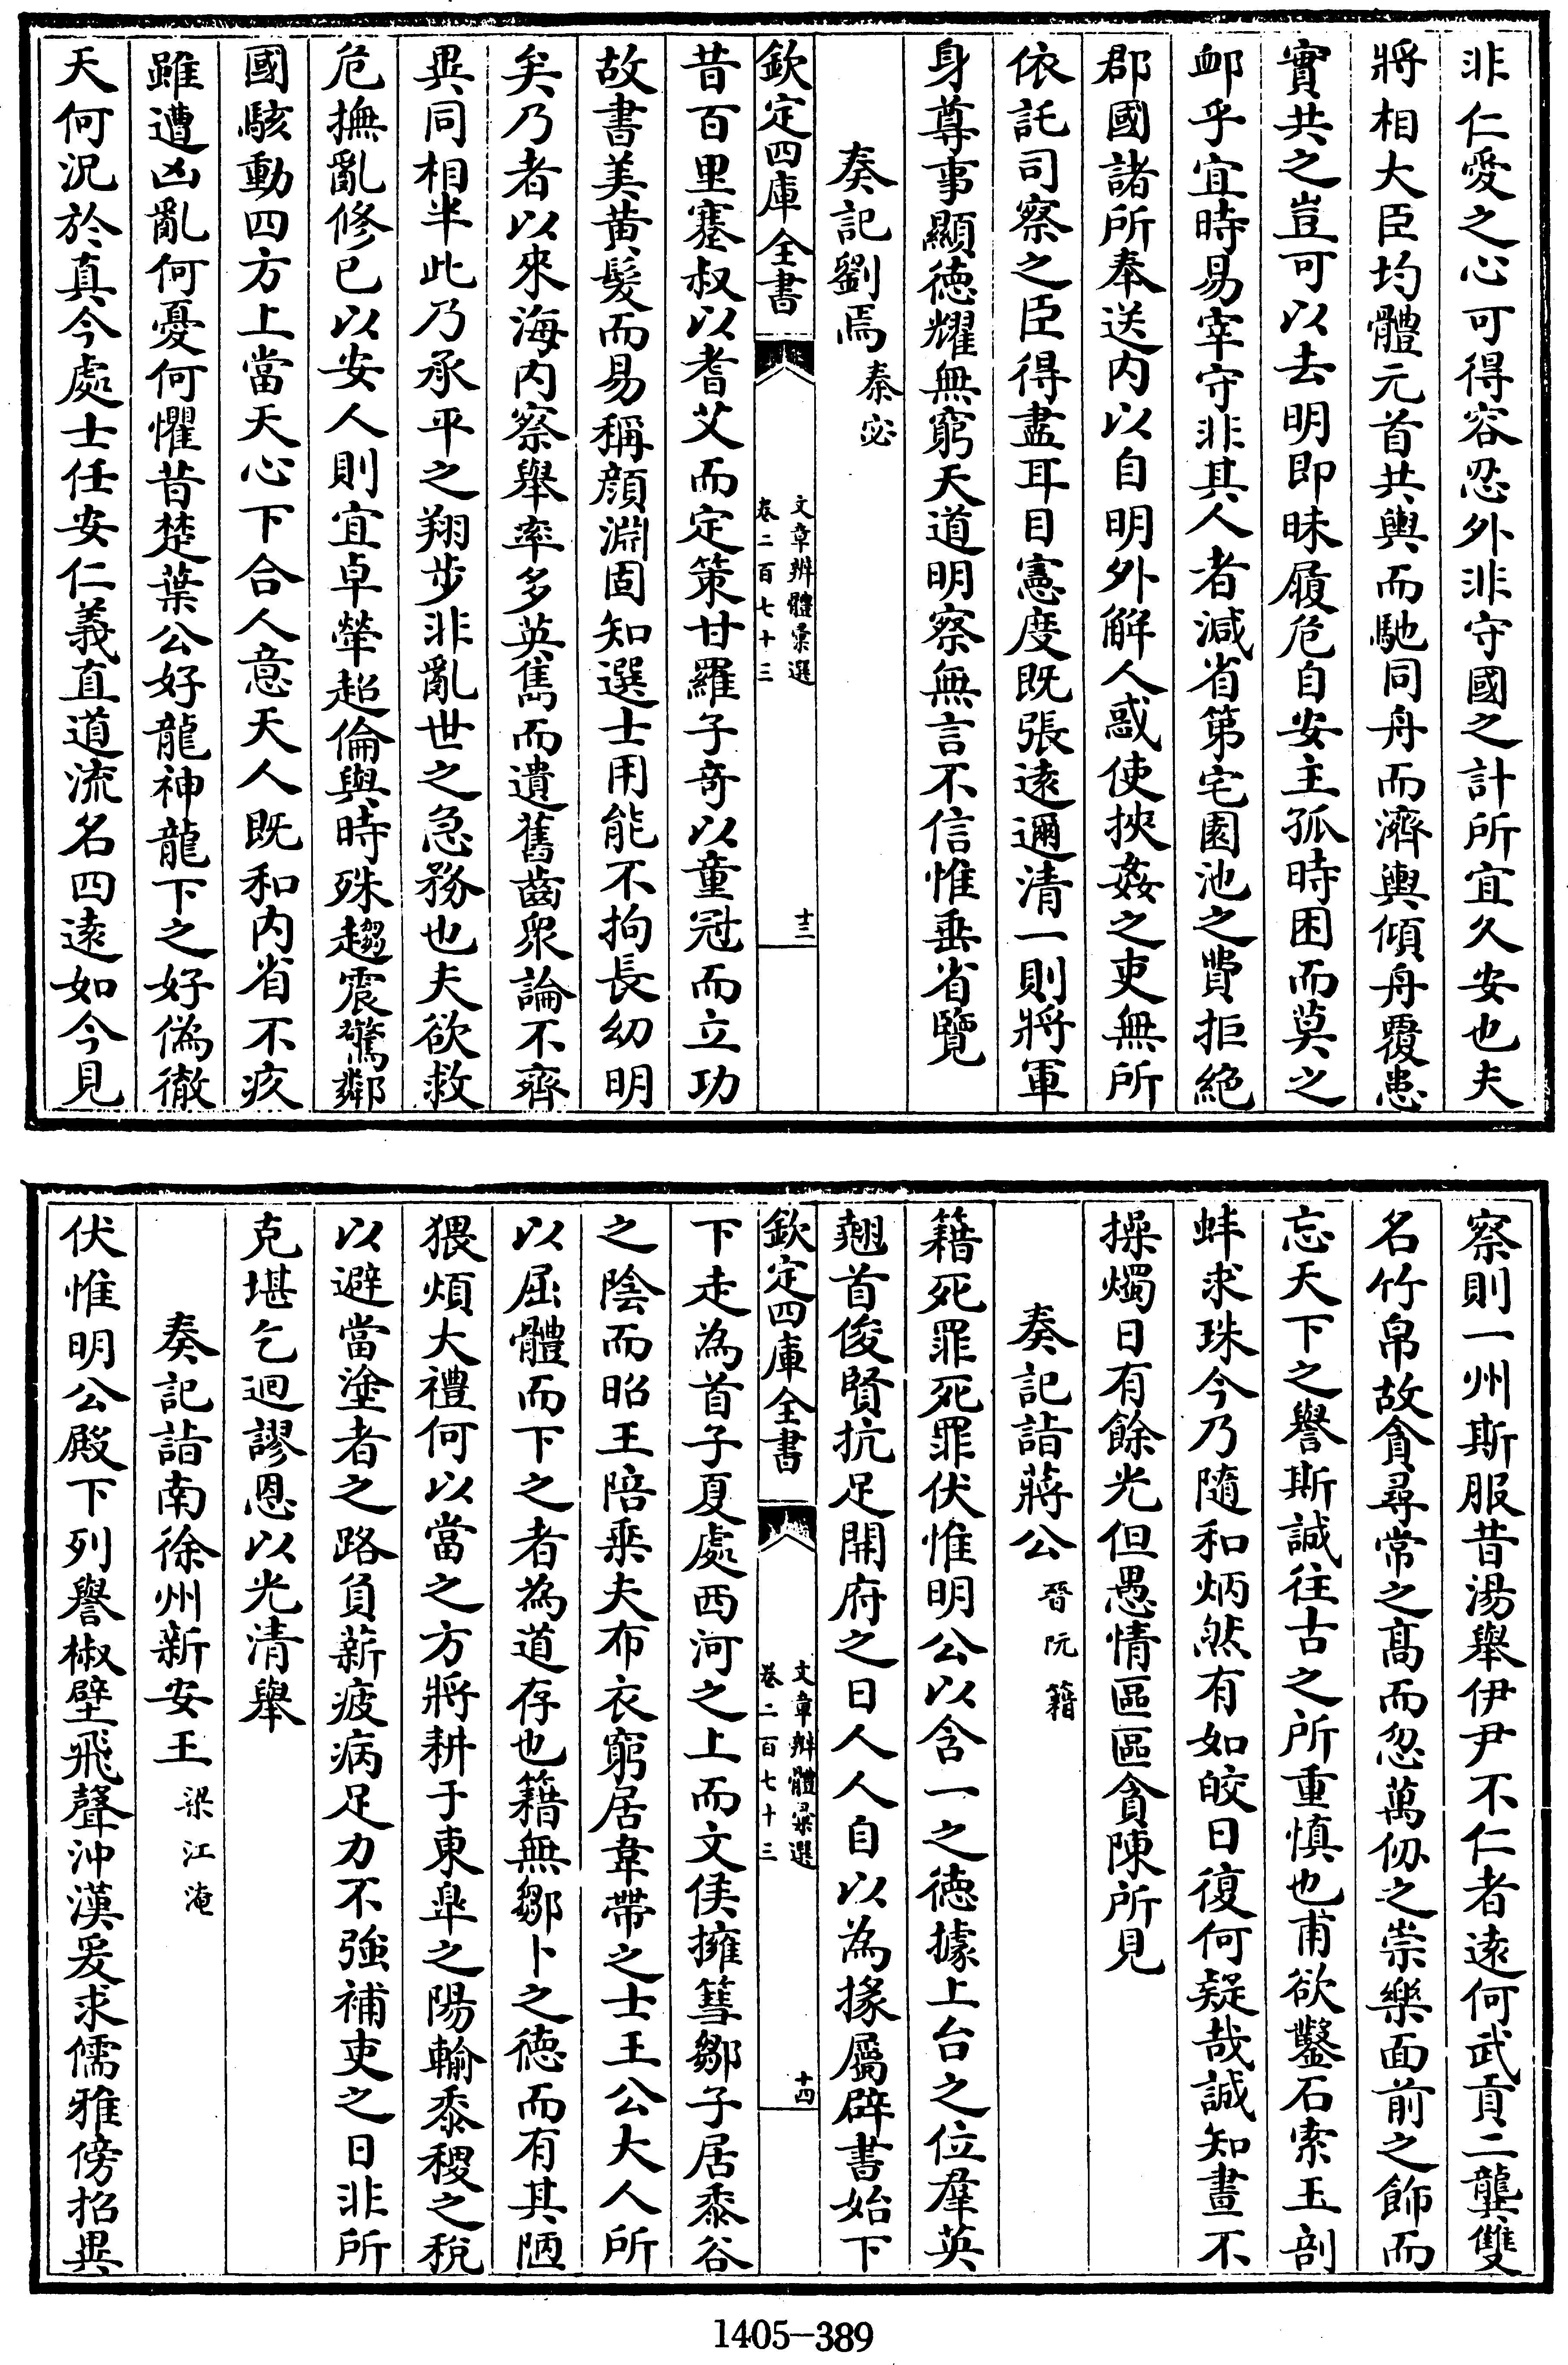 非仁愛之心可得容忍外非守國之計所宜久安也夫
將相大臣均體元首共輿而馳同舟而濟輿傾舟覆患
實共之豈可以去明即昧履危自安主孤時困而莫之
䘏乎宜時易宰守非其人者減省第宅園池之費拒絶
郡國諸所奉送内以自明外解人惑使挾姦之吏無所
依託司察之臣得盡耳目憲度既張逺邇清一則將軍
身尊事顯徳耀無窮天道明察無言不信惟垂省覽
奏記劉焉 秦宓
欽定四庫全書
文章辨體彙選
卷二百七十三
十三
昔百里蹇叔以耆艾而定策甘羅子竒以童冠而立功
故書美黄髪而易稱顔淵固知選士用能不拘長幼明
矣乃者以來海内察舉率多英雋而遺舊齒衆論不齊
異同相半此乃承平之翔步非亂世之急務也夫欲救
危撫亂修己以安人則宜卓犖超倫與時殊趨震驚鄰
國駭動四方上當天心下合人意天人既和内省不疚
雖遭凶亂何憂何懼昔楚葉公好龍神龍下之好偽徹
天何況於真今處士任安仁義直道流名四逺如今見
察則一州斯服昔湯舉伊尹不仁者逺何武貢二龔雙
名竹帛故貪尋常之髙而忽萬仭之崇樂面前之飾而
忘天下之譽斯誠往古之所重慎也甫欲鑿石索玉剖
蚌求珠今乃隨和炳然有如皎日復何疑哉誠知晝不
操燭日有餘光但愚情區區貪陳所見
奏記詣蔣公 晉阮籍
籍死罪死罪伏惟明公以含一之徳據上台之位羣英
翹首俊賢抗足開府之日人人自以為掾屬辟書始下
欽定四庫全書
文章辨體彙選
卷二百七十三
十四
下走為首子夏處西河之上而文侯擁篲鄒子居黍谷
之陰而昭王陪乗夫布衣窮居韋帶之士王公大人所
以屈體而下之者為道存也籍無鄒卜之徳而有其陋
猥煩大禮何以當之方將耕于東臯之陽輸黍稷之稅
以避當塗者之路負薪疲病足力不強補吏之日非所
克堪乞迴謬恩以光清舉
奏記詣南徐州新安王 梁江淹
伏惟明公殿下列譽椒壁飛聲沖漢爰求儒雅傍招異
1405-389